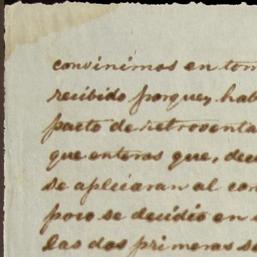 convinimos en tom
recibido porque, hab
pacto de retroventa
que enteras que, dec
se aplicaran al con
poco se decidió en
las dos primeras se